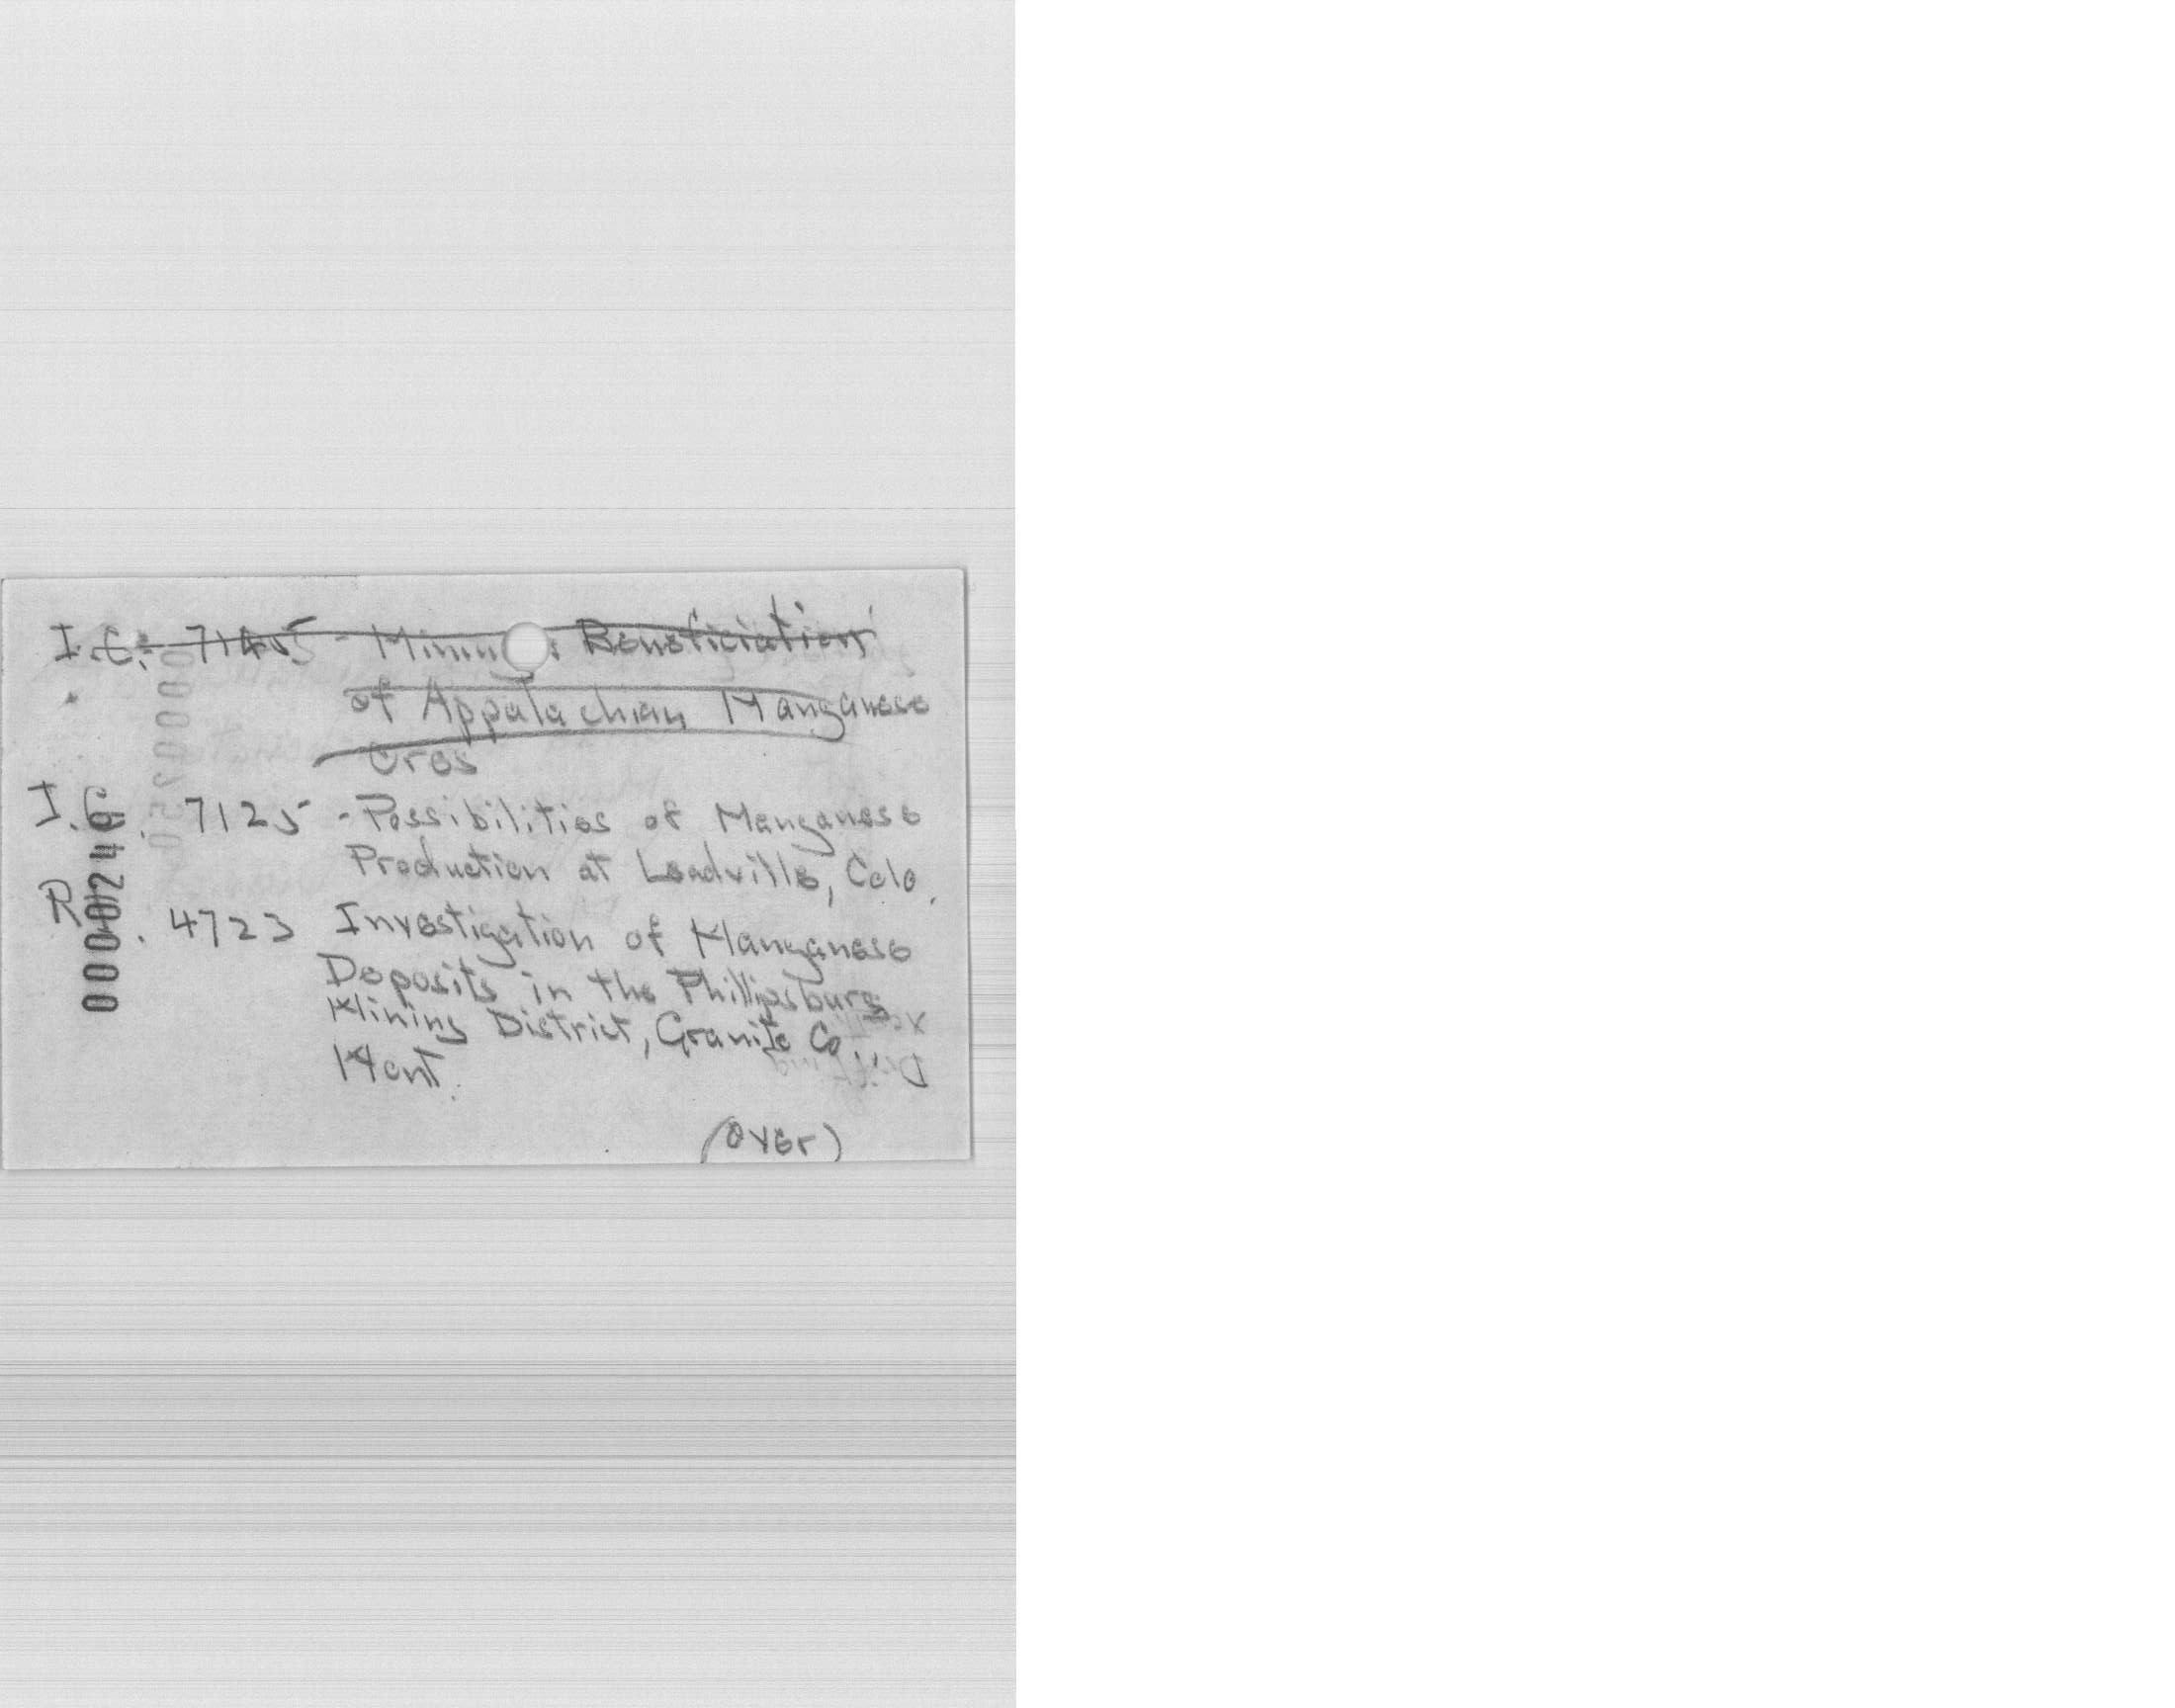 I.C. 7145 - Mining & Beneficiation
of Appalachian Manganese
Ores
I.C. 7125 - Possibilities of Manganese
Production at Leadville, Colo.
R . 4723 Investigation of Manganese
Deposits in the Phillipsburg
Mining District, Granite Co.,
Mont.
(over)
0000249